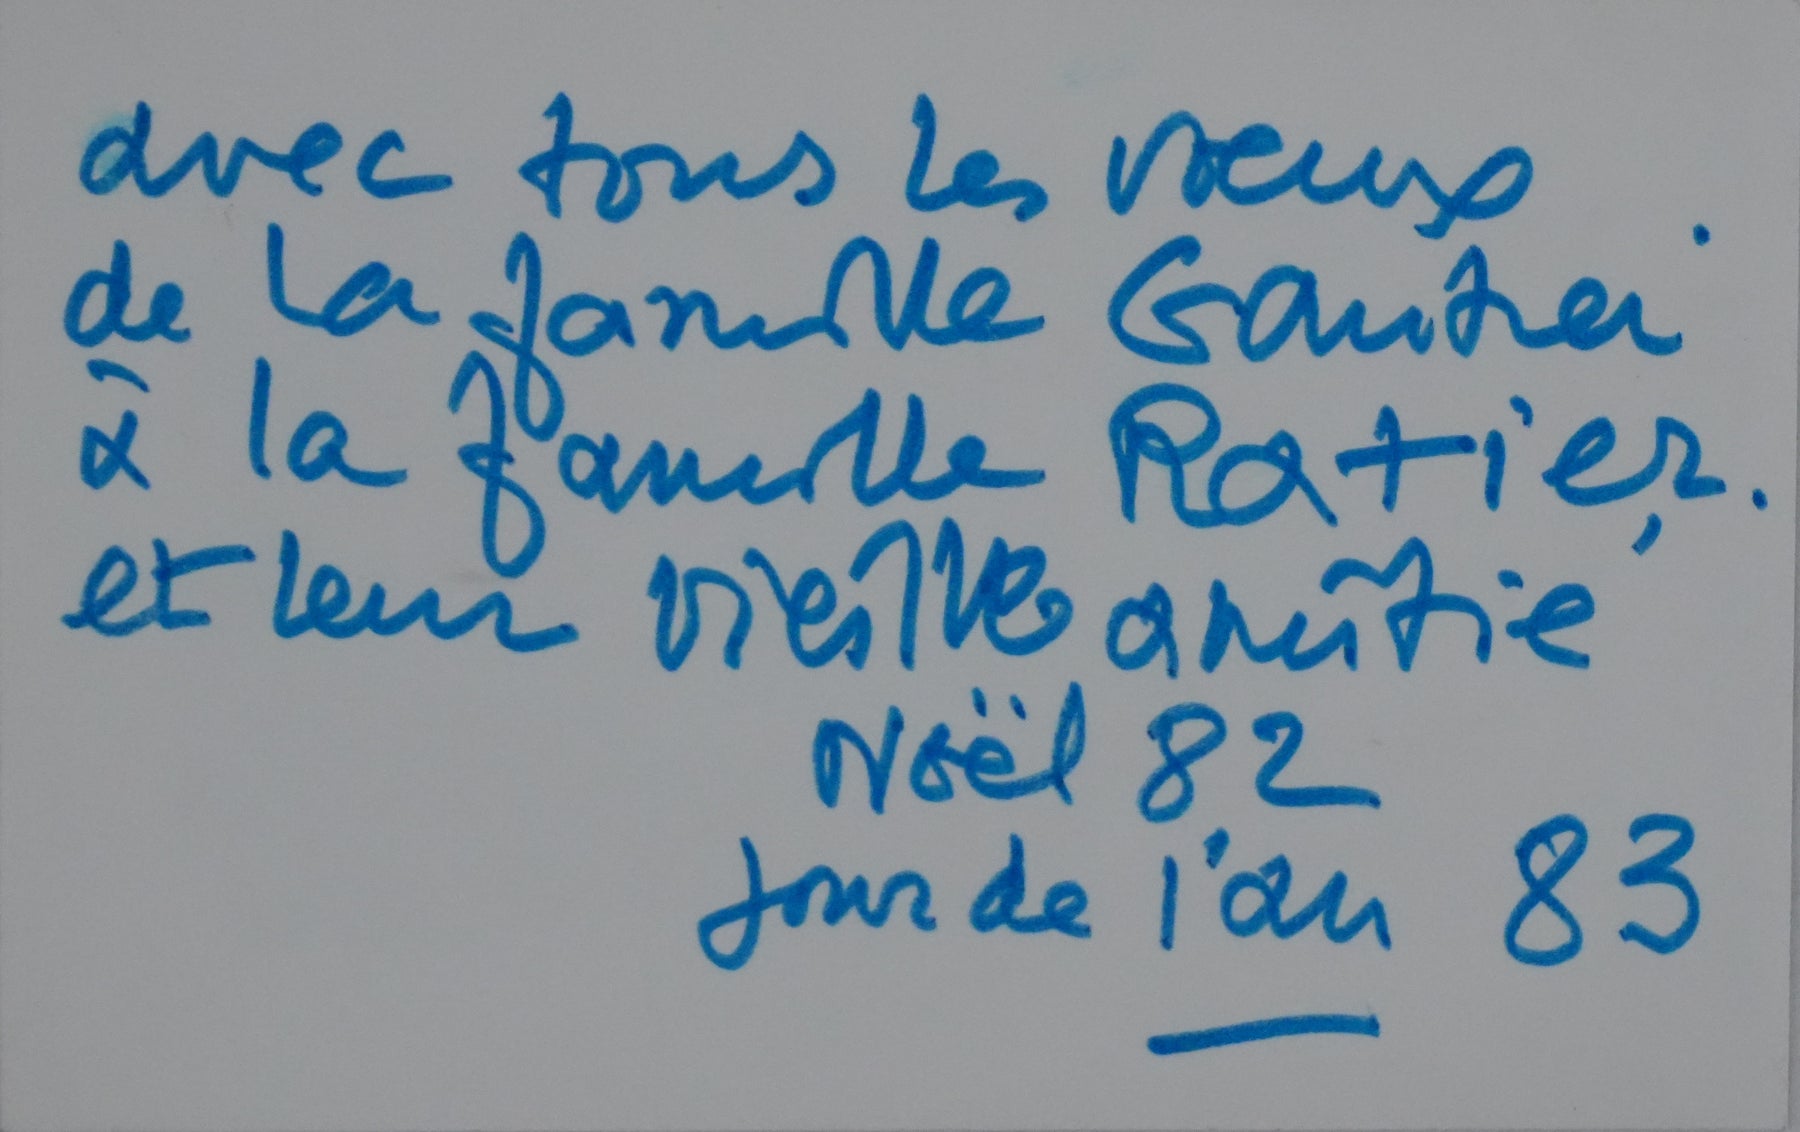 avec tous les vœux
de la famille Gautier
à la famille Ratier.
et leur vieille amitié
Noël 82
Jour de l'an 83